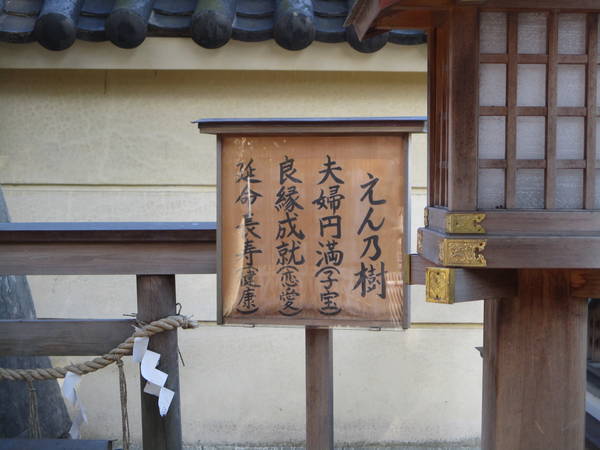 えん乃樹
夫婦円満(子宝)
良縁成就(恋愛)
延命長寿(健康)